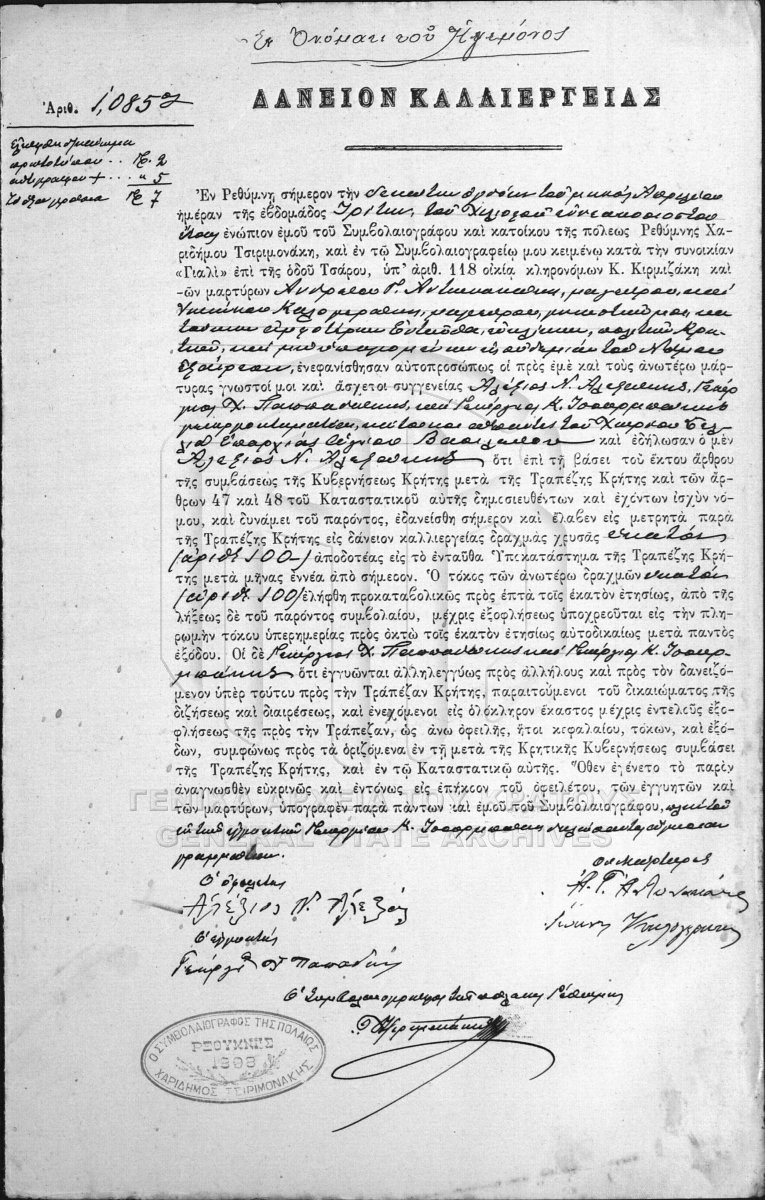 Εν Ὀνόματι τοῦ Ἡγεμόνος
ΔΑΝΕΙΟΝ ΚΑΛΛΙΕΡΓΕΙΑΣ
Ἀριθ. 1,085
Ἐν Ρεθύμνῃ σήμερον τὴν δεκάτην ὀγδόην τοῦ μηνὸς Ἀπριλίου
ἡμέραν τῆς ἑβδομάδος Τρίτην, τοῦ χιλιοστοῦ ἐννεακοσιοστοῦ
ἔτους ἐνώπιον ἐμοῦ τοῦ Συμβολαιογράφου καὶ κατοίκου τῆς πόλεως Ρεθύμνης Χα-
ριδήμου Τσιριμονάκη, καὶ ἐν τῷ Συμβολαιογραφείῳ μου κειμένῳ κατὰ τὴν συνοικίαν
«Γιαλὶ» ἐπὶ τῆς ὁδοῦ Τσάρου, ὑπ' ἀριθ. 118 οἰκίᾳ κληρονόμων Κ. Κιρμιζάκη καὶ
-ῶν μαρτύρων Ἀνδρέου Γ. μαγείρου, καὶ
Ἰωάννου Καλογεράκη,
ἐξαίρεσιν, ἐνεφανίσθησαν αὐτοπροσώπως οἱ πρὸς ἐμὲ καὶ τοὺς ἀνωτέρω μάρ-
τυρας γνωστοί μοι καὶ ἄσχετοι συγγενείας Ἀλέξιος Ν. Ἀλεξάκης, Γεώρ-
γιος Χ. Παπαδάκης, καὶ Γεώργιος Κ. Τσαρμπάκης
Ἐπαρχίας Ἁγίου Βασιλείου καὶ ἐδήλωσαν ὁ μὲν
Ἀλέξιος Ν. Ἀλεξάκης ὅτι ἐπὶ τῇ βάσει τοῦ ἕκτου ἄρθρου
τῆς συμβάσεως τῆς Κυβερνήσεως Κρήτης μετὰ τῆς Τραπέζης Κρήτης καὶ τῶν ἄρ-
θρων 47 καὶ 48 τοῦ Καταστατικοῦ αὐτῆς δημοσιευθέντων καὶ ἐχόντων ἰσχὺν νό-
μου, καὶ δυνάμει τοῦ παρόντος, ἐδανείσθη σήμερον καὶ ἔλαβεν εἰς μετρητὰ παρὰ
τῆς Τραπέζης Κρήτης εἰς δάνειον καλλιεργείας δραχμὰς χρυσᾶς ἑκατὸν
(ἀριθ 100) ἀποδοτέας εἰς τὸ ἐνταῦθα Ὑποκατάστημα τῆς Τραπέζης Κρή-
της μετὰ μῆνας ἐννέα ἀπὸ σήμερον. Ὁ τόκος τῶν ἀνωτέρω δραχμῶν ἑκατὸν
(ἀριθ 100) ἐλήφθη προκαταβολικῶς πρὸς ἑπτὰ τοῖς ἑκατὸν ἐτησίως, ἀπὸ τῆς
λήξεως δὲ τοῦ παρόντος συμβολαίου, μέχρις ἐξοφλήσεως ὑποχρεοῦται εἰς τὴν πλη-
ρωμὴν τόκου ὑπερημερίας πρὸς ὀκτὼ τοῖς ἑκατὸν ἐτησίως αὐτοδικαίως μετὰ παντὸς
ἐξόδου. Οἱ δὲ Γεώργιος Χ. Παπαδάκης καὶ Γεώργιος Κ. Τσαρ-
μπάκης ὅτι ἐγγυῶνται ἀλληλεγγύως πρὸς ἀλλήλους καὶ πρὸς τὸν δανειζό-
μενον ὑπὲρ τούτου πρὸς τὴν Τράπεζαν Κρήτης, παραιτούμενοι τοῦ δικαιώματος τῆς
διζήσεως καὶ διαιρέσεως, καὶ ἐνεχόμενοι εἰς ὁλόκληρον ἕκαστος μέχρις ἐντελοῦς ἐξο-
φλήσεως τῆς πρὸς τὴν Τράπεζαν, ὡς ἄνω ὀφειλῆς, ἤτοι κεφαλαίου, τόκων, καὶ ἐξό-
δων, συμφώνως πρὸς τὰ ὁριζόμενα ἐν τῇ μετὰ τῆς Κρητικῆς Κυβερνήσεως συμβάσει
τῆς Τραπέζης Κρήτης, καὶ ἐν τῷ Καταστατικῷ αὐτῆς. Ὅθεν ἐγένετο τὸ παρὸν
ἀναγνωσθὲν εὐκρινῶς καὶ ἐντόνως εἰς ἐπήκοον τοῦ ὀφειλέτου, τῶν ἐγγυητῶν καὶ
τῶν μαρτύρων, ὑπογραφὲν παρὰ πάντων καὶ ἐμοῦ τοῦ Συμβολαιογράφου, πλὴν τοῦ
ἐγγυητοῦ Γεωργίου Κ. Τσαρμπάκη
γραμμάτων.
Οἱ Μάρτυρες
Ὁ ὀφειλέτης
Ἀλέξιος Ν. Ἀλεξάκης
Ὁ ἐγγυητής
Γεώργιος Χ Παπαδάκης
Ὁ Συμβολαιογράφος Ρεθύμνης
Ο ΣΥΜΒΟΛΑΙΟΓΡΑΦΟΣ ΤΗΣ ΠΟΛΕΩΣ
ΡΕΘΥΜΝΗΣ
ΧΑΡΙΔΗΜΟΣ ΤΣΙΡΙΜΟΝΑΚΗΣ
GENERAL STATE ARCHIVES